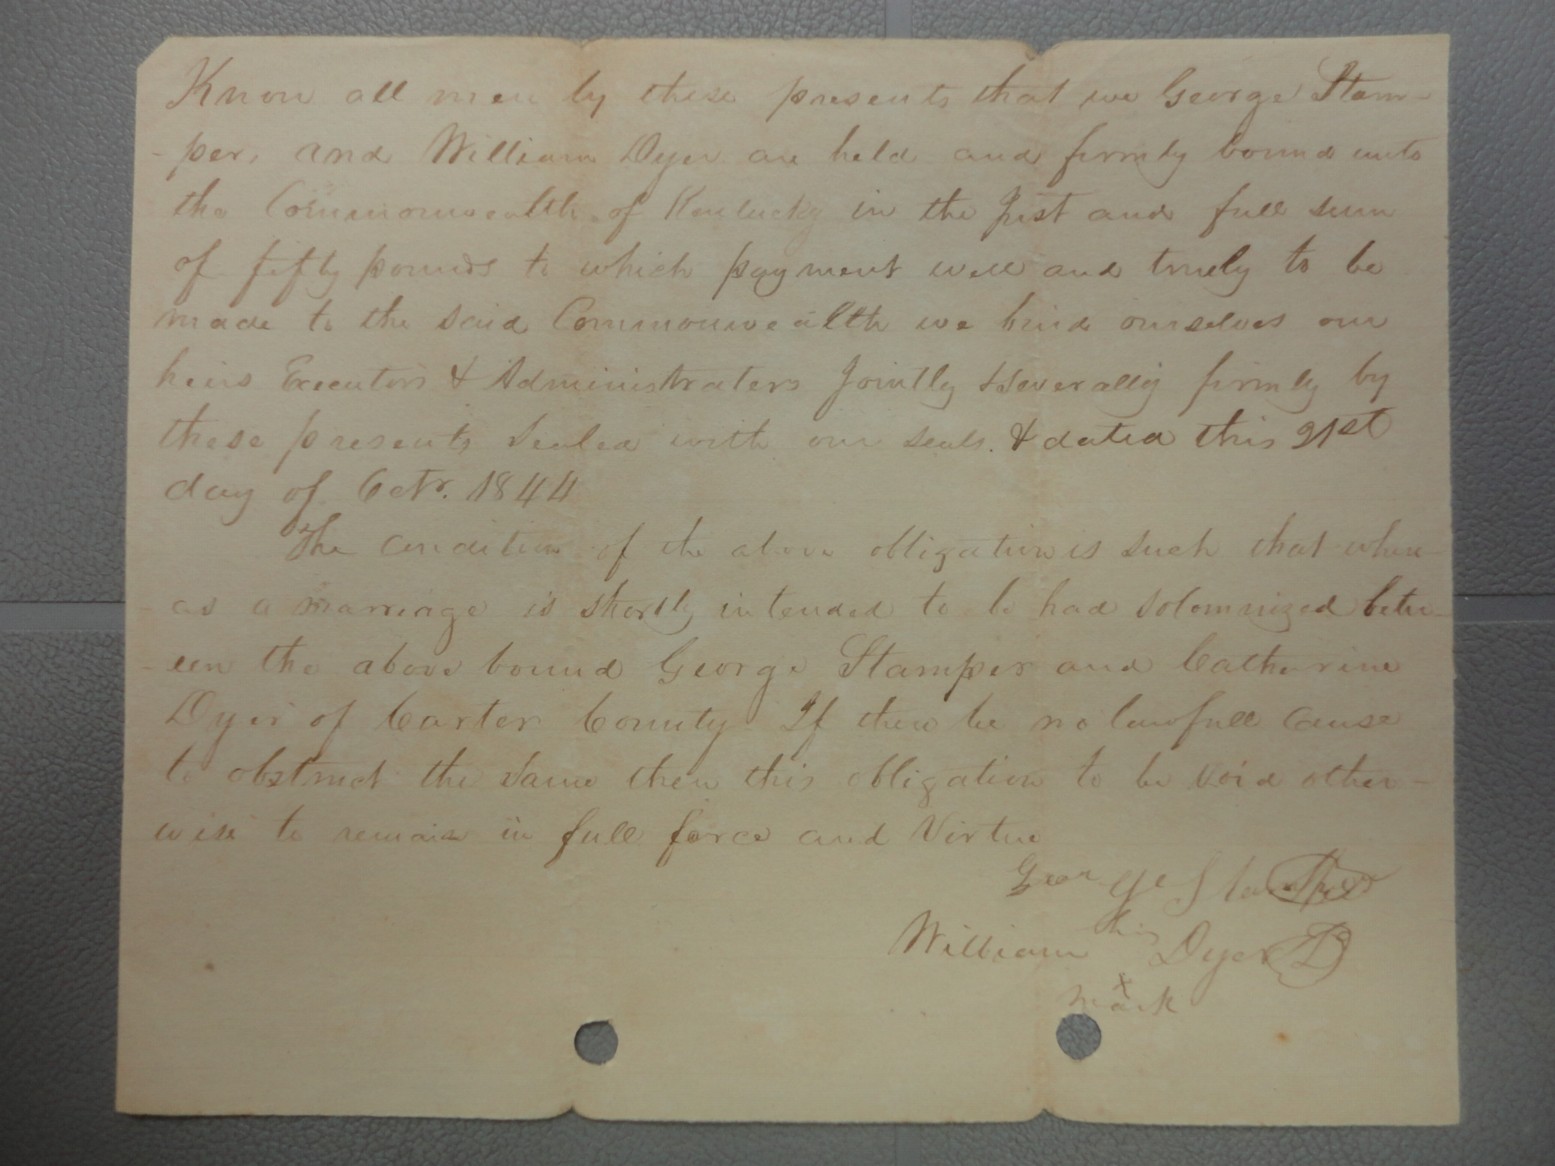 Know all men by these presents that we George Stam-
-per, and William Dyer are held and firmly bound unto
the Commonwealth of Kentucky in the Just and full sum
of fifty pounds to which payment well and truely to be
made to the said Commonwealth we bind ourselves our
heirs Executors & Administraters Jointly & Severally firmly by
these presents Sealed with our seals. & dated this 21st
day of Octr. 1844
The Condition of the above obligation is such that where-
as a marriage is shortly intended to be had Solemnized betw-
-een the above bound George Stamper and Catharine
Dyer of Carter County If there be no lawfull Cause
to obstruct the same then this obligation to be void other-
wise to remain in full force and Virtue
George Stamper
his
William Dyer
x
mark